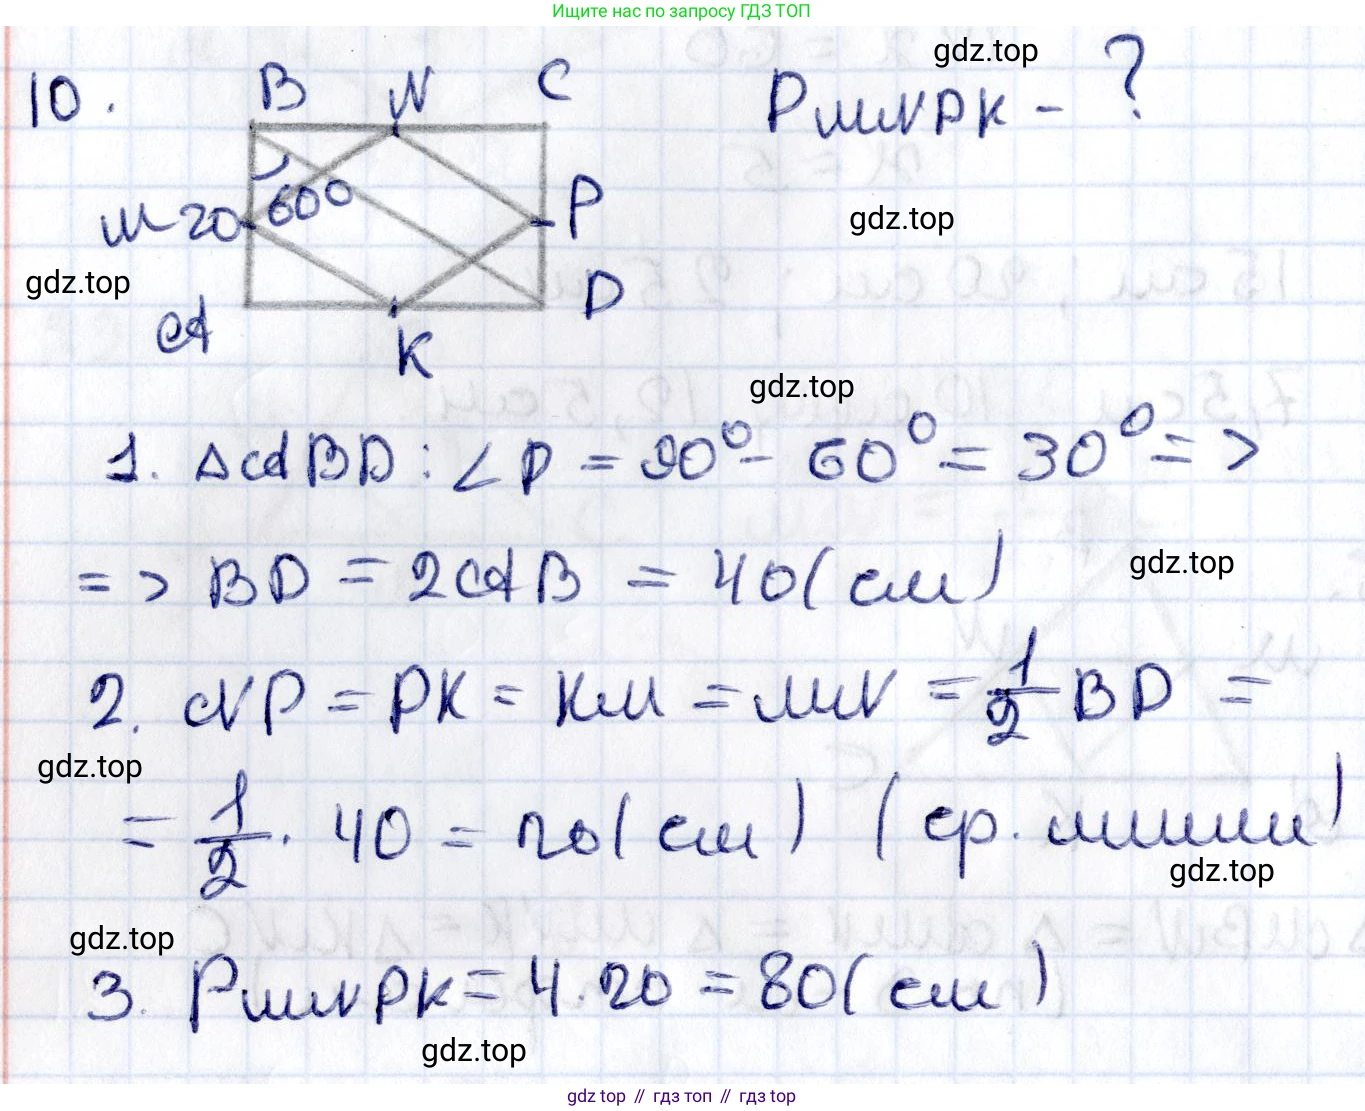 Ищите нас по запросу ГДЗ ТОП
gdz.top
10.
B N C
P MNPK - ?
60°
M 20 P
gdz.top
gdz.top
A K D
gdz.top
1. △ABD: ∠D = 90° - 60° = 30° =>
=> BD = 2AB = 40 (см)
gdz.top
2. NP = PK = KM = MN = 1/2 BD =
gdz.top
= 1/2 · 40 = 20 (см) (ср. линии)
gdz.top
gdz.top
3. P MNPK = 4 · 20 = 80 (см)
gdz.top
gdz top // гдз топ // gdz top